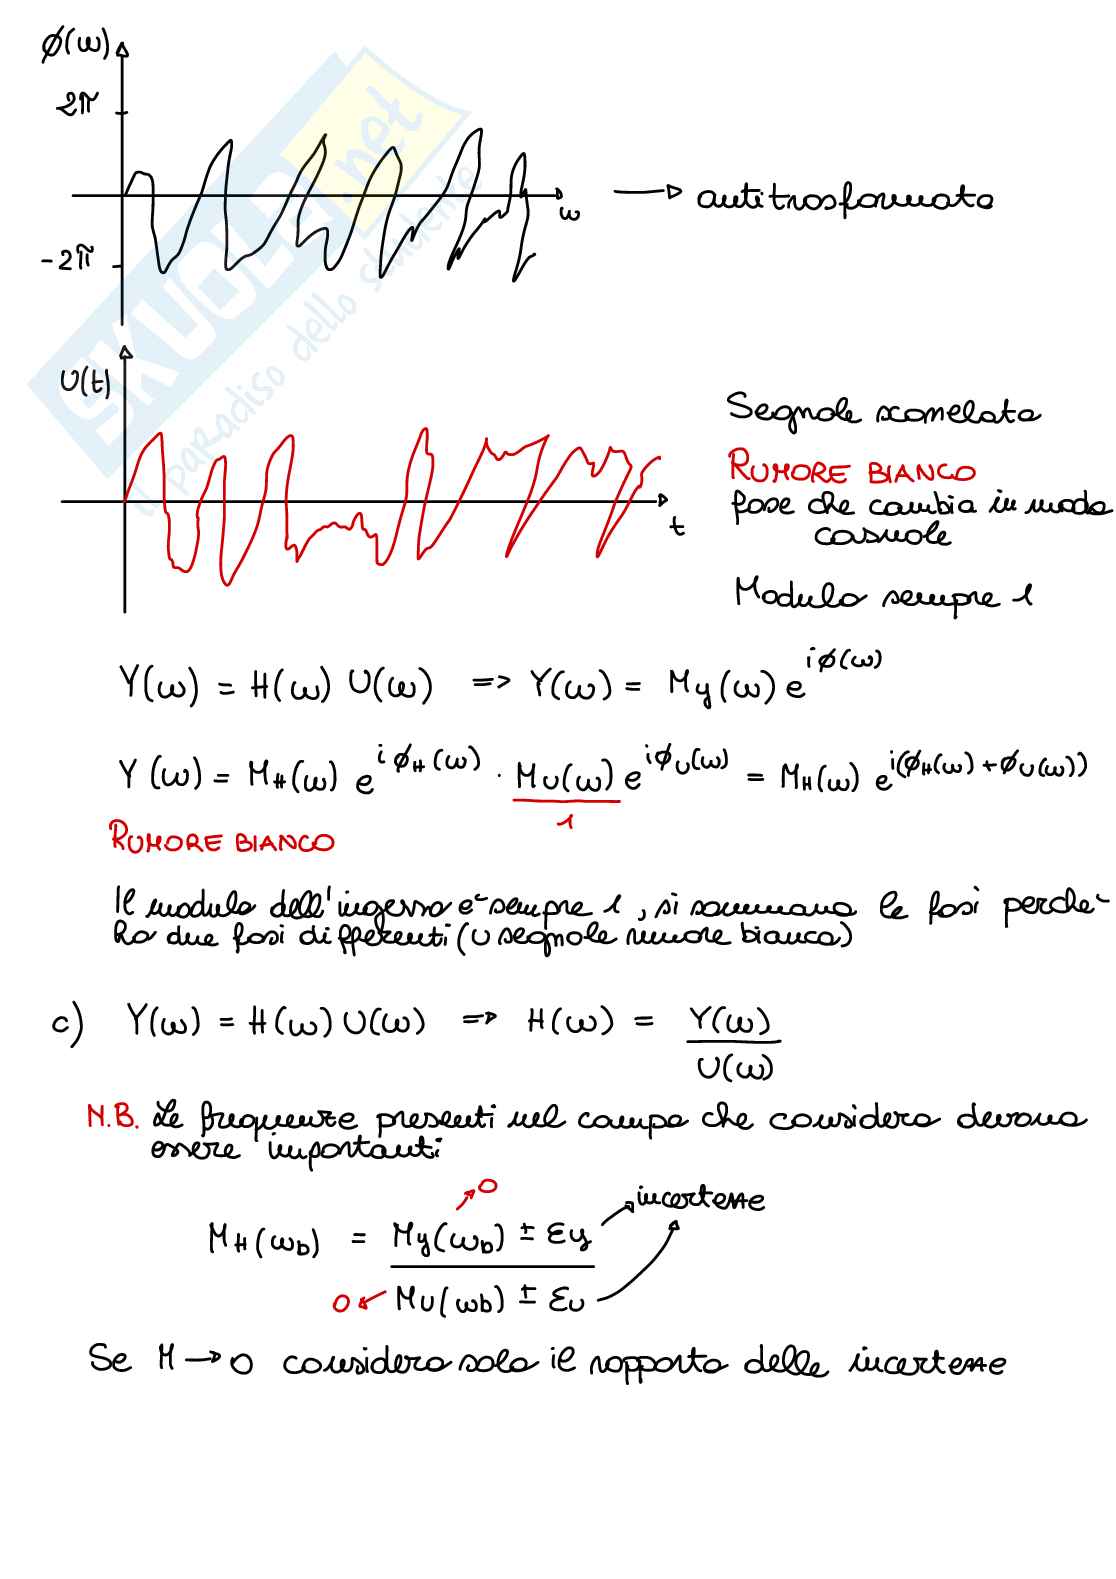 ϕ(ω)
2π
-2π
ω
→ antitrasformata
SKUOLA.net
il paradiso dello studente
U(t)
t
Segnale scorrelato
RUMORE BIANCO
fase che cambia in modo
casuale
Modulo sempre 1
Y(ω) = H(ω) U(ω) => Y(ω) = My(ω) e^iϕ(ω)
Y(ω) = MH(ω) e^iϕH(ω) · MU(ω) e^iϕU(ω) = MH(ω) e^i(ϕH(ω)+ϕU(ω))
1
RUMORE BIANCO
Il modulo dell'ingresso è sempre 1, si sommano le fasi perché
ho due fasi differenti (U segnale rumore bianco)
c) Y(ω) = H(ω) U(ω) => H(ω) = Y(ω)
U(ω)
N.B. Le frequenze presenti nel campo che considero devono
essere importanti
0
incertezze
MH(ωb) = My(ωb) ± εy
0 ← MU(ωb) ± εU
Se M → 0 considero solo il rapporto delle incertezze